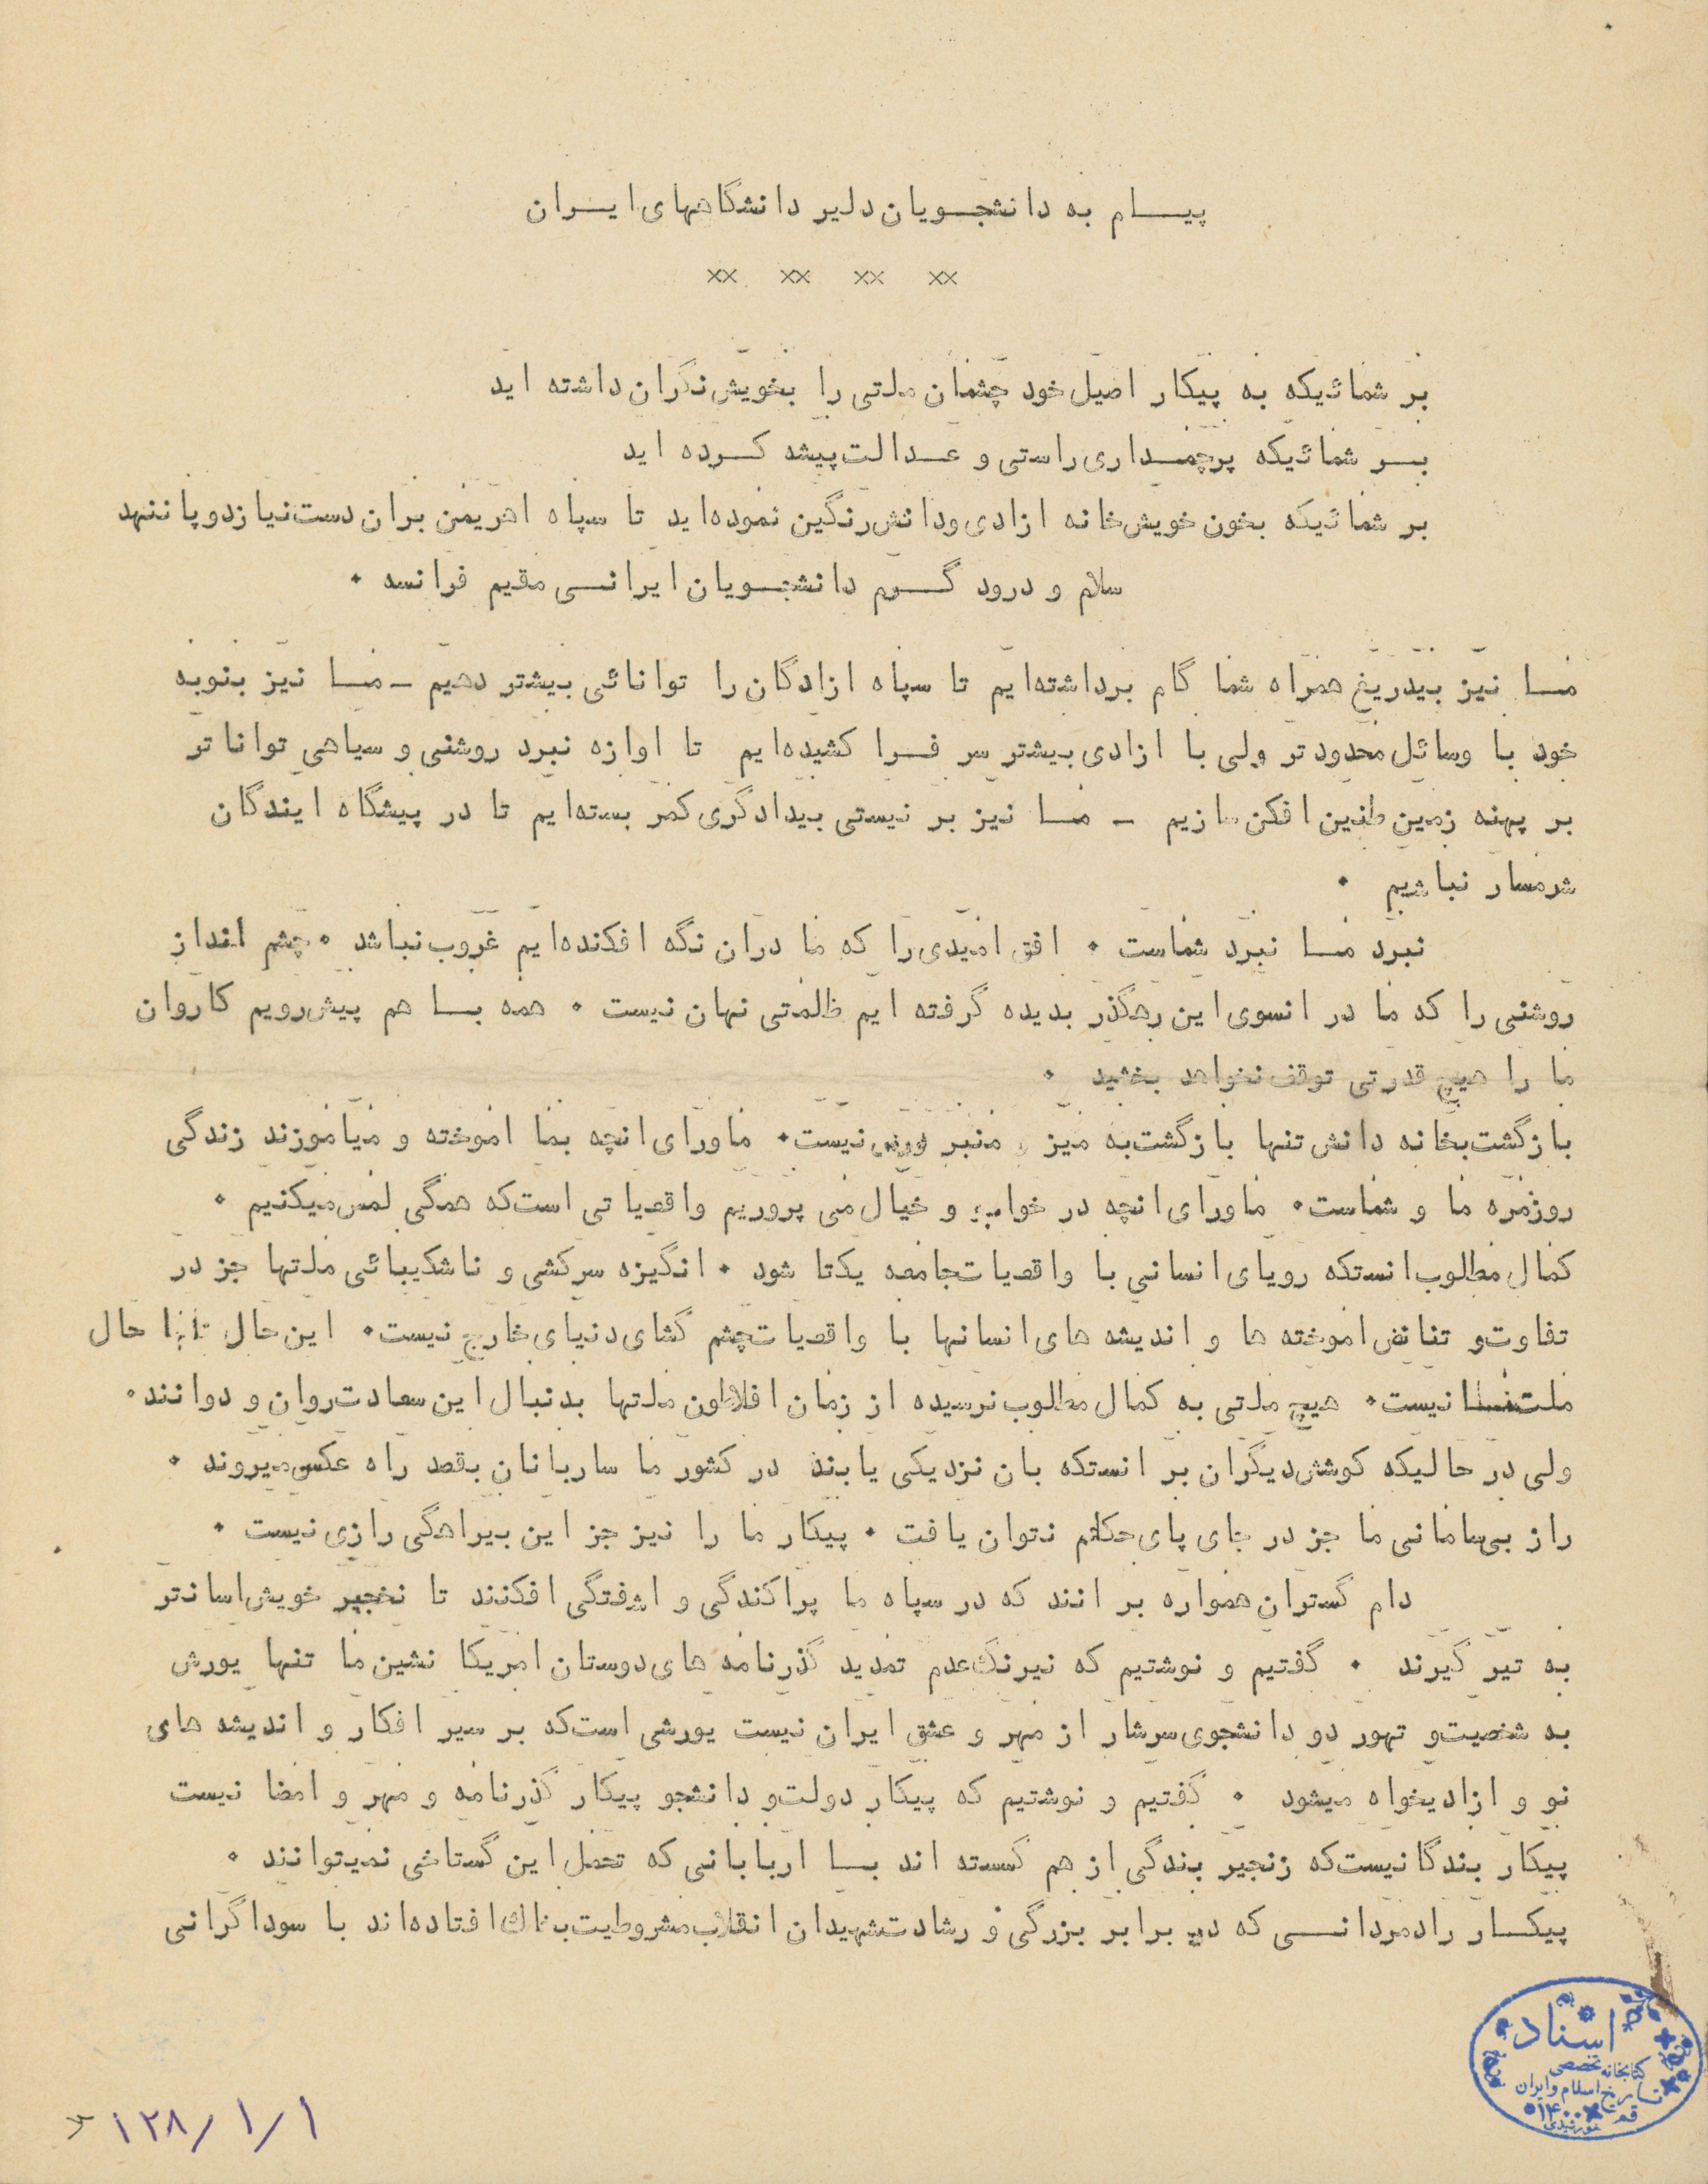 پیام به دانشجویان دلیر دانشگاههای ایران
×× ×× ×× ××
بر شمائیکه به پیکار اصیل خود چشمان ملتی را بخویش نگران داشته اید
بر شمائیکه پرچمداری راستی و عدالت پیشه کرده اید
بر شمائیکه بخون خویش خانه ازادی و دانش رنگین نموده‌اید تا سپاه اهریمن بران دست نیازد و پا ننهد
سلام و درود گرم دانشجویان ایرانی مقیم فرانسه ۰
ما نیز بیدریغ همراه شما گام برداشته‌ایم تا سپاه ازادگان را توانائی بیشتر دهیم – ما نیز بنوبه
خود با وسائل محدودتر ولی با ازادی بیشتر سر فرا کشیده‌ایم تا اوازه نبرد روشنی و سیاهی تواناتر
بر پهنه زمین طنین افکن سازیم – ما نیز بر نیستی بیدادگری کمر بسته‌ایم تا در پیشگاه ایندگان
شرمسار نباشیم ۰
نبرد ما نبرد شماست ۰ افق امیدی را که ما دران نگه افکنده‌ایم غروب نباشد ۰ چشم انداز
روشنی را که ما در انسوی این رهگذر بدیده گرفته ایم ظلمتی نهان نیست ۰ همه با هم پیش رویم کاروان
ما را هیچ قدرتی توقف نخواهد بخشید ۰
بازگشت بخانه دانش تنها بازگشت به میز و منبر درس نیست۰ ماورای انچه بما اموخته و میاموزند زندگی
روزمره ما و شماست۰ ماورای انچه در خواب و خیال می پروریم واقعیاتی است که همگی لمس میکنیم ۰
کمال مطلوب انستکه رویای انسانی با واقعیات جامعه یکتا شود ۰ انگیزه سرکشی و ناشکیبائی ملتها جز در
تفاوت و تناقض اموخته ها و اندیشه های انسانها با واقعیات چشم گشای دنیای خارج نیست۰ این حال تنها حال
ملت ما نیست۰ هیچ ملتی به کمال مطلوب نرسیده از زمان افلاطون ملتها بدنبال این سعادت روان و دوانند۰
ولی در حالیکه کوشش دیگران بر انستکه بان نزدیکی یابند در کشور ما ساربانان بقصد راه عکس میروند ۰
راز بی‌سامانی ما جز در جای پای حکام نتوان یافت ۰ پیکار ما را نیز جز این بیراهگی رازی نیست ۰
دام گستران همواره بر انند که در سپاه ما پراکندگی و اشفتگی افکنند تا نخجیر خویش اسانتر
به تیر گیرند ۰ گفتیم و نوشتیم که نیرنگ عدم تمدید گذرنامه های دوستان امریکا نشین ما تنها یورش
به شخصیت و تهور دو دانشجوی سرشار از مهر و عشق ایران نیست یورشی است که بر سیر افکار و اندیشه های
نو و ازادیخواه میشود ۰ گفتیم و نوشتیم که پیکار دولت و دانشجو پیکار گذرنامه و مهر و امضا نیست
پیکار بندگانیست که زنجیر بندگی از هم گسسته اند با اربابانی که تحمل این گستاخی نمیتوانند ۰
پیکار رادمردانی که در برابر بزرگی و رشادت شهیدان انقلاب مشروطیت بخاک افتاده‌اند با سوداگرانی
اسناد
کتابخانه تخصصی
تاریخ اسلام و ایران
قم
۱۲۸/۱/۱